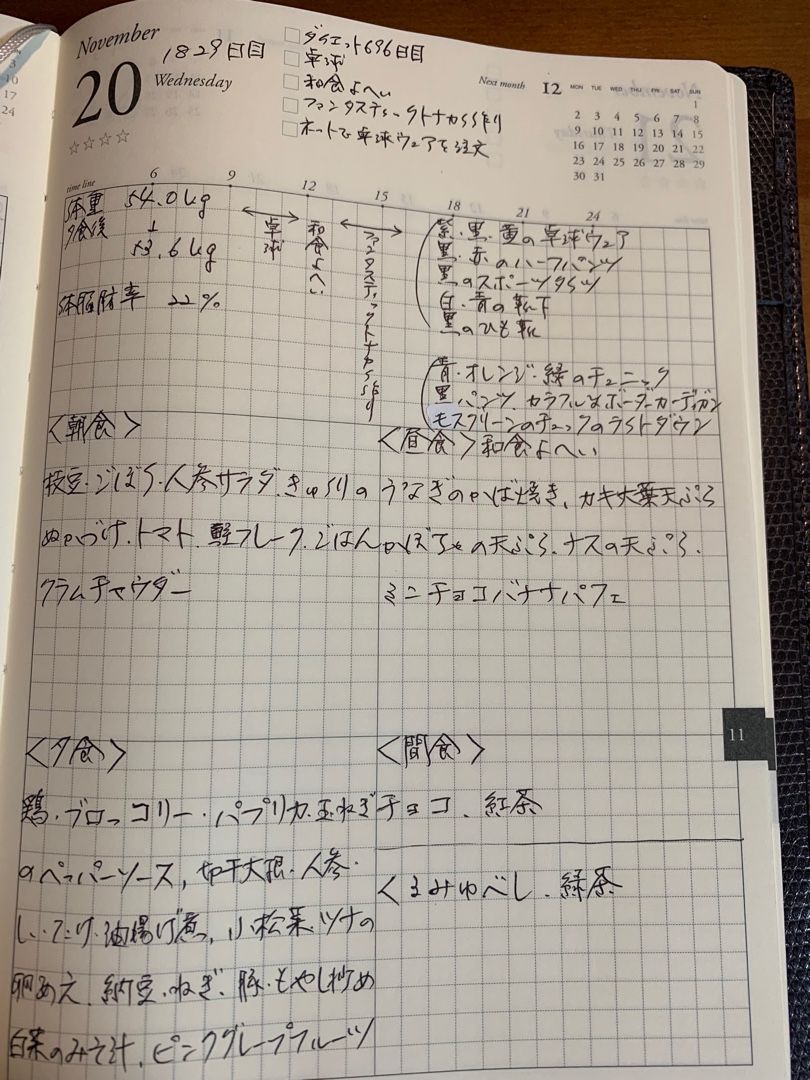 November
20
Wednesday
1829日目
☆☆☆☆
ダイエット696日目
卓球
和食よへい
ファンタスティックトナカSS作り
ネットで卓球ウェアを注文
Next month 12 MON TUE WED THU FRI SAT SUN
1
2 3 4 5 6 7 8
9 10 11 12 13 14 15
16 17 18 19 20 21 22
23 24 25 26 27 28 29
30 31
time line 6 9 12 15 18 21 24
体重 54.0kg
夕食後 ↓
53.6kg
体脂肪率 22%
卓球
和食よへい
ファンタスティックトナカSS作り
紫・黒・黄の卓球ウェア
黒・赤のハーフパンツ
黒のスポーツタイツ
白・青の靴下
黒のひも靴
青・オレンジ・緑のチュニック
黒パンツ カラフルなボーダーカーディガン
モスグリーンのチェックのライトダウン
<朝食>
枝豆・ごぼう・人参サラダ、きゅうりの
ぬかづけ、トマト、鮭フレーク、ごはん
クラムチャウダー
<昼食>和食よへい
うなぎのかば焼き、カキ大葉天ぷら
かぼちゃの天ぷら、ナスの天ぷら、
ミニチョコバナナパフェ
<夕食>
鶏・ブロッコリー・パプリカ・玉ねぎ
のペッパーソース、切干大根・人参・
しいたけ・油揚げ煮、小松菜・ツナの
卵あえ、納豆・ねぎ、豚・もやし炒め
白菜のみそ汁、ピンクグレープフルーツ
<間食>
チョコ、紅茶
くるみゆべし、緑茶
11